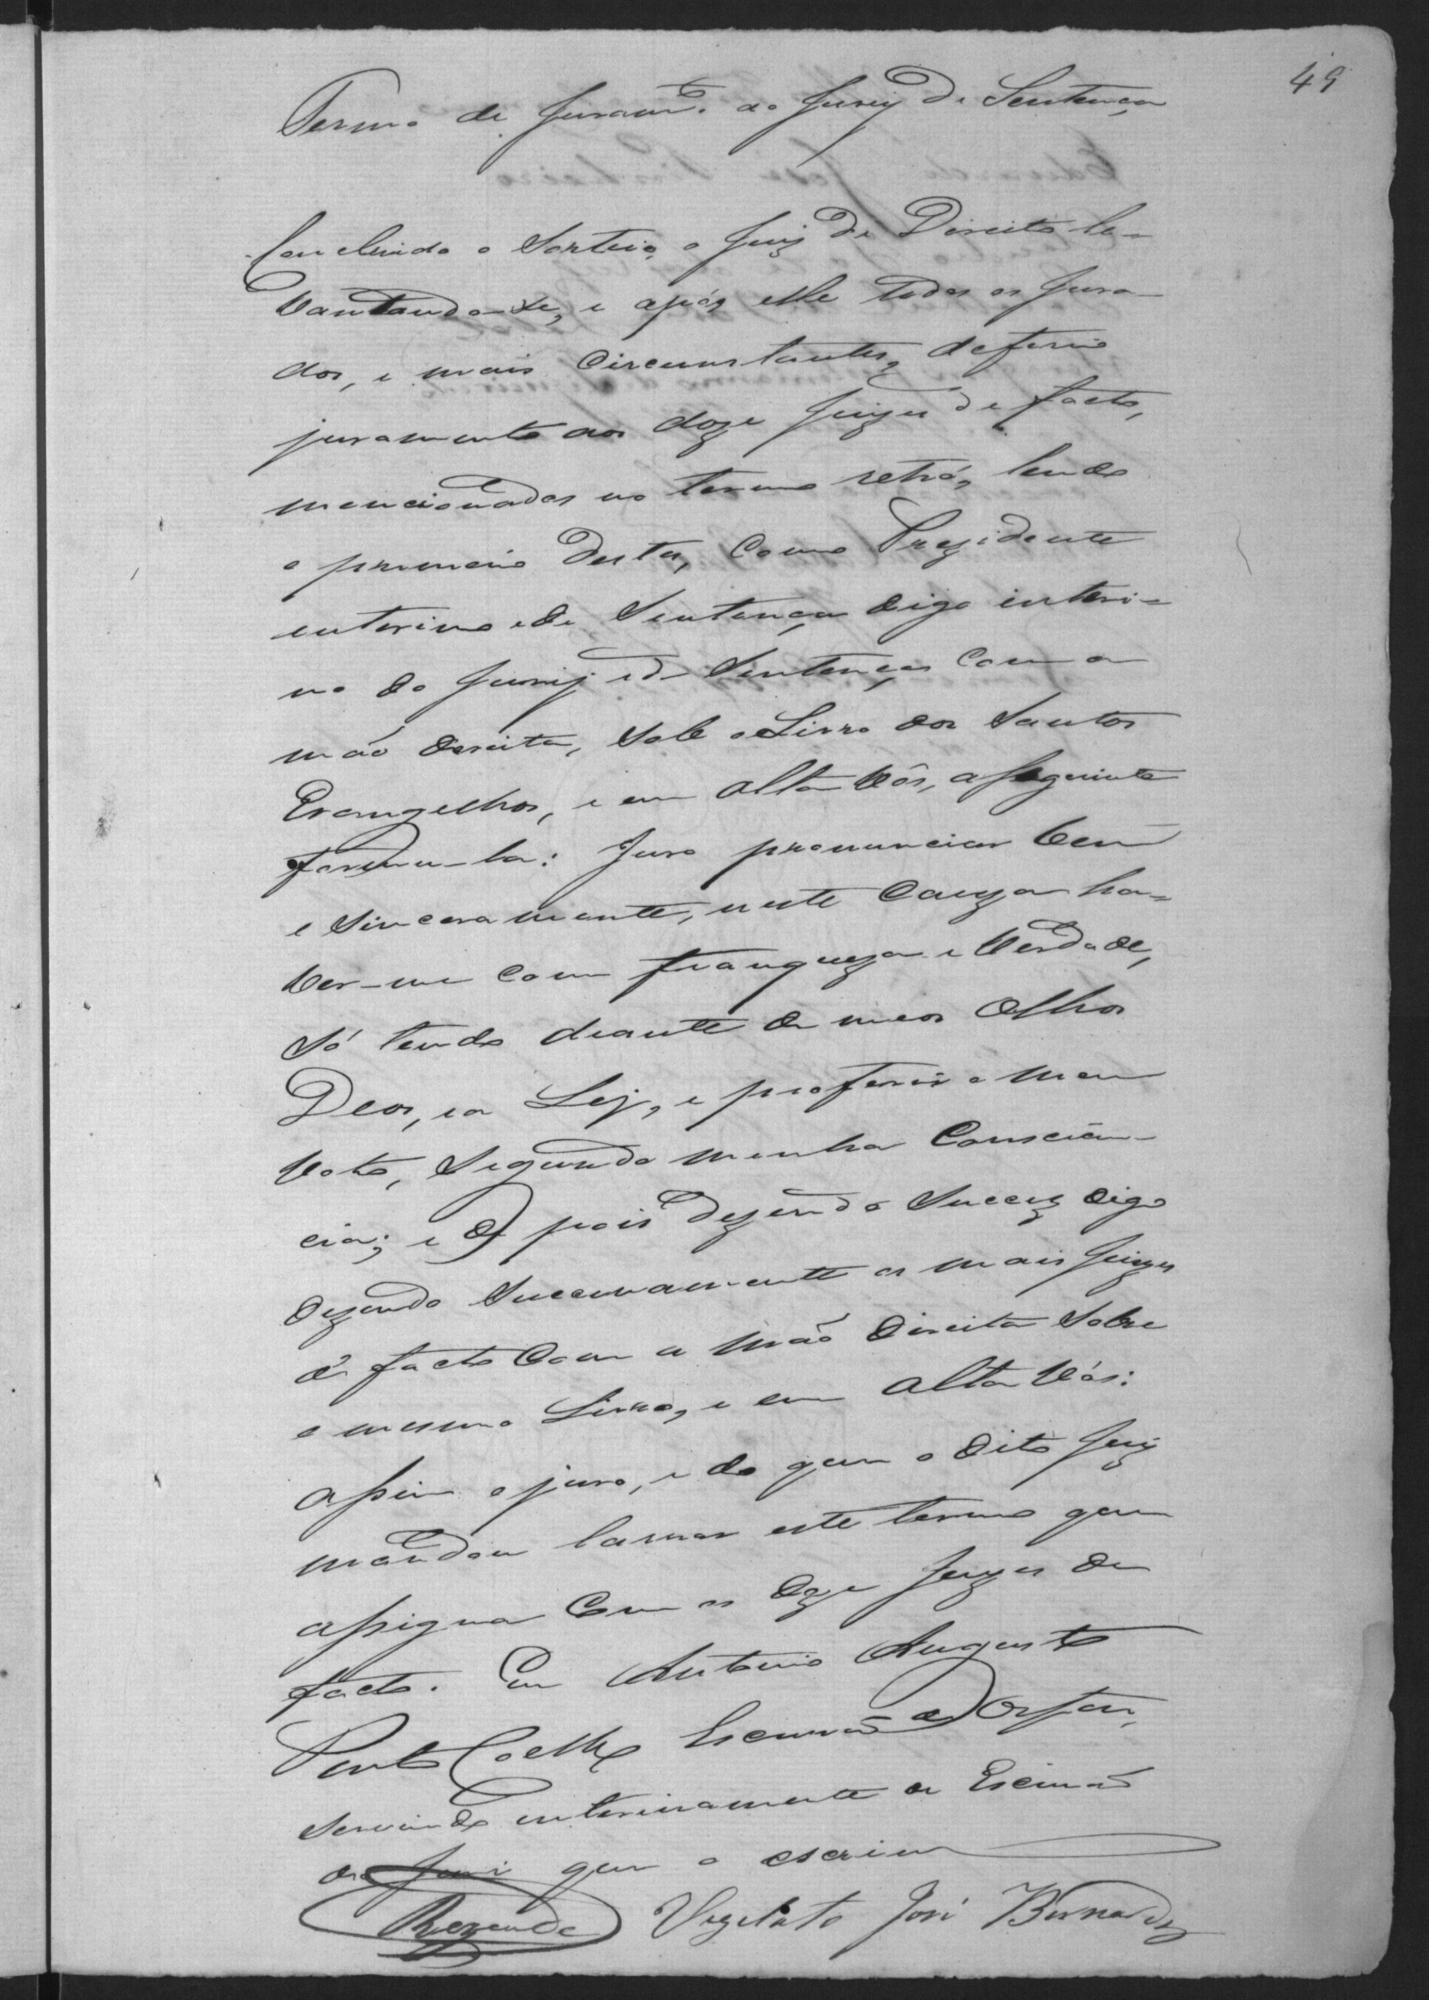 49
Termo de Juram.to ao Jury de Sentença
Concluido o Sorteio, o Juiz de Direito le-
vantando-se, e após elle todos os Jura-
dos, e mais circunstantes, deferio
juramento aos doze Juizes de facto,
mencionados no termo retró, lendo
o primeiro destes, como Prezidente
interino de Sentença digo interi-
no do Jury de Sentença com a
mão direita, sob o Livro dos Santos
Evangelhos, e em alta vós, a seguinte
formu-la: Juro pronunciar bem
e sinceramente, neste cauza ha-
ver-me com franqueza e verdade,
só tendo diante de meos olhos
Deos, e a Ley, e proferir o meu
voto, segundo minha conscien-
cia; e depois dizendo succes digo
dizendo successivamente os mais Juizes
de facto com a mão direita sobre
o mesmo Livro, e em alta vós:
assim o juro, e do que o dito Juiz
mandou lavrar este termo que
assigna com os doze Juizes de
facto. Eu Antonio Augusto
Pinto Coelho Escrivão de Orfãos,
servindo interinamente de Escrivão
do Juri que o escrevi
Rezende Vigilato José Bernardes